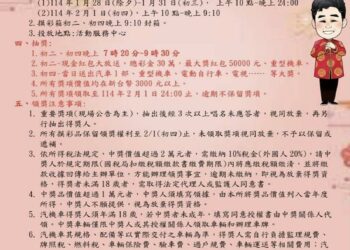 (1)114年1月28日(除夕)-1月31日(初三), 上午10點-晚上24:00
(2)114年2月1日(初四), 上午10點-晚上9:10
2. 摸彩箱初二、初四晚上9:10封箱。
3. 投放地點:活動服務中心
四、抽獎:
1. 初二、初四晚上7時20分-9時30分
2. 初二:現金紅包大放送,總彩金30萬,最大獎紅包50000元,重型機車。
3. 初四:當日送出汽車1部、重型機車、電動自行車、電視......等大獎。
4. 所有獎項價值均在新台幣3000元以上。
5. 所有獎項領取至114年2月1日24:00止,逾期不保留獎項。
五、領獎注意事項:
1. 重要獎項(現場公告為主),抽出後經3次以上唱名未應答者,視同放棄,再另抽出得獎人。
2. 所有摸彩品保留領獎權至2/1(初四)止,未領取獎項視同放棄,不予以保留或遞補。
3. 依所得稅法規定,中獎價值超過2萬元者,需繳納10%稅金(外國人20%),請中獎人於規定期限(國稅局扣繳稅額繳款書繳費期限)內將應繳稅額繳清,並將繳款收據回傳給主辦單位,方能辦理領獎事宜,逾期未繳納,即視為放棄得獎資格,得獎者未滿18歲者,需取得法定代理人或監護人同意書。
4. 中獎品價值超過1萬元者,中獎人須填寫領據,由本州將獎品價值列入當年度所得,中獎人不願提供,視為放棄得獎資格。
5. 汽機車得獎人須年滿18歲,若中獎者未成年,填寫同意授權書由中獎關係人代領,中獎車輛僅限中獎人或其授權關係人領取車輛和辦理轉車。
6. 汽機車其規格、配備等以實際交付之車輛為準,得獎人需自行負擔監理規費、牌照稅、燃料稅、車輛保險費、驗車費、過戶費、車輛運送等相關費用。汽